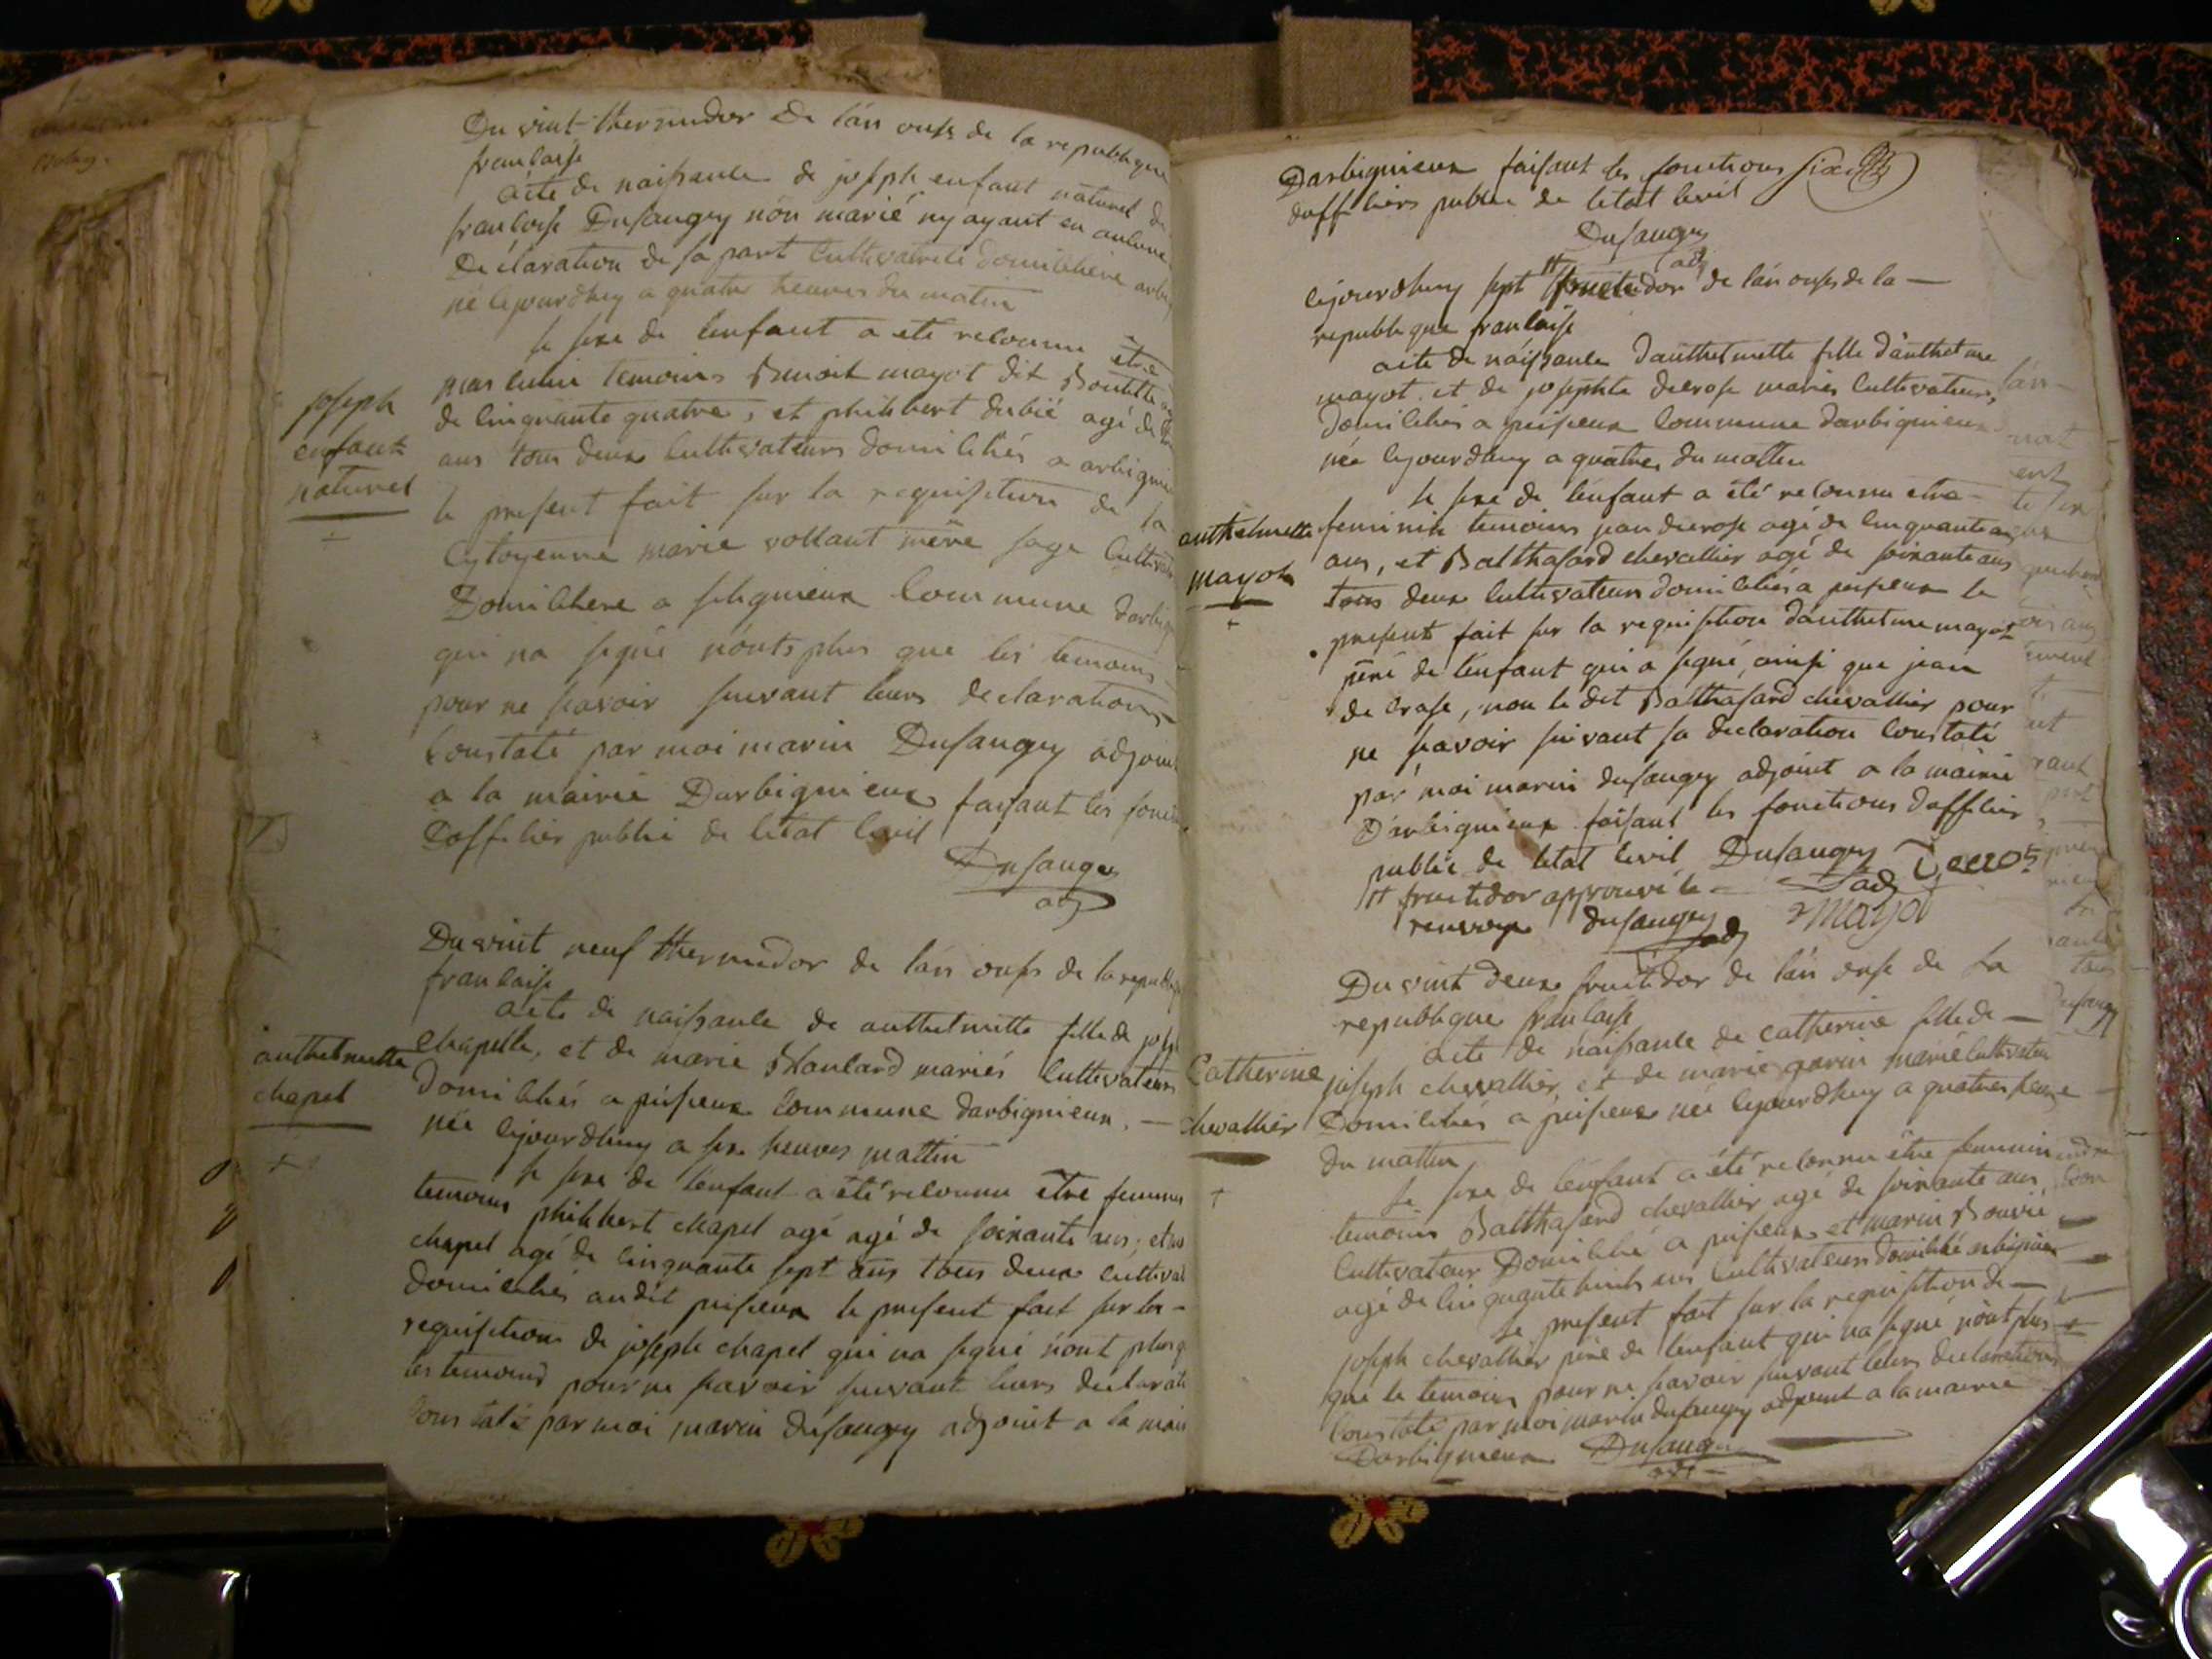 Du vint thermidor De lán onse de la republique
francaise
acte de naissance de joseph enfant naturel de
francoise Dusaugey nón marié ny ayant eu aulcune
Déclaration de sa part Cultivatrice domiciliére
né cejourdhuy a quatre heures du matin
le sexe de lenfant a eté reconnu être
masculin temoins Benoit mayot dit
de cinquante quatre, et philibert dubié agé de
ans tous deux cultivateurs domiciliés a
le present fait sur la requisition de la
Cytoyenne marie vollant mère sage
Domiciliere a commune
qui na signé nónts plus que les temoins
pour ne scavoir suivant leurs declarations
Constaté par moi marin Dusaugey adjoint
a la mairie Darbignieux faisant les
Dofficier public de létat civil
Dusaugey
adj
joseph
enfant
naturel
+
Du vint neuf thermidor de lán onse de la
francaise
acte de naissance de anthelmette fille de
chapelle, et de marie mariés Cultivateurs
domiciliés a peisieux commune darbignieux. —
née cejourdhuy a six heures mattin
le sexe de lénfant a été reconnu être
temoins philibert chapel agé agé de soixante ans,
chapel agé de cinquante sept ans tous deux
domiciliés audit peisieux le present fait sur la -
requisition de joseph chapel qui na signé nónt
les temoins pour ne scavoir suivant leurs
constaté par moi marin dusaugey adjoint a la
anthelmette
chapel
+
Darbignieux faisant les fonctions
dofficiers public de létat civil
Dusaugey
adj
cejourdhuy sept # fructidor de lán onse de la —
republique francaise
acte de náissance Danthelmette fille dánthelme
mayot. et de josephte decrose mariés Cultivateurs,
Domiciliés a peisieux Commune darbignieux
née cejourdhuy a quatres du mattin
le sexe de lénfant a été reconnu etre
feminin temoins jean decrose agé de cinquante
ans, et Balthasard chevallier agé de soixante ans
tous deux Cultivateurs domiciliés a peisieux le
present fait sur la requisition dánthelme mayot
père de lénfant qui a signé, ainsi que jean
de crose, non le dit Balthasard chevallier pour
ne scavoir suivant sa declaration Constaté
par moi marin dusaugey adjoint a la mairie
Dárbignieux faisant les fonctions dofficier
public de létat civil Dusaugey
adj
# fructidor approuvé le — mayot
renvoye dusaugey
adj
anthelmette
mayot
+
Du vint deux fructidor de lán onse de la
republique francaise
acte de naissance de catherine fille de —
joseph chevallier, et de marie garin marié Cultivateur
Domiciliés a peisieux née cejourdhuy a quatres heure
du mattin
Le sexe de lénfant a été reconnu être feminin
temoins Balthasard chevallier agé de soixante ans
Cultivateur Domicilié a peisieux et marin Bouvié
agé de cinquante huit ans Cultivateurs domicilié arbignieux
Le present fait sur la requisition de —
joseph chevallier père de lénfant qui na signé nónt plus
que le temoins pour ne scavoir suivant leurs declarations
Constaté par moi marin dusaugey adjoint a la mairie
Darbignieux Dusaugey
adj
Catherine
chevallier
+